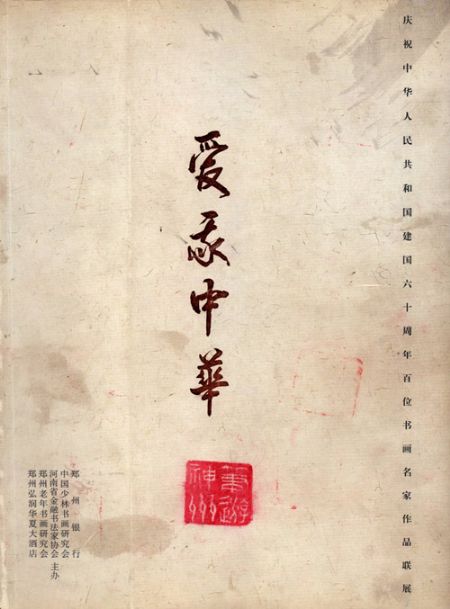 庆祝中华人民共和国建国六十周年百位书画名家作品联展
爱我中華
筆遊
神州
郑州银行
中国少林书画研究会
河南省金融书法家协会 主办
郑州老年书画研究会
郑州弘润华夏大酒店